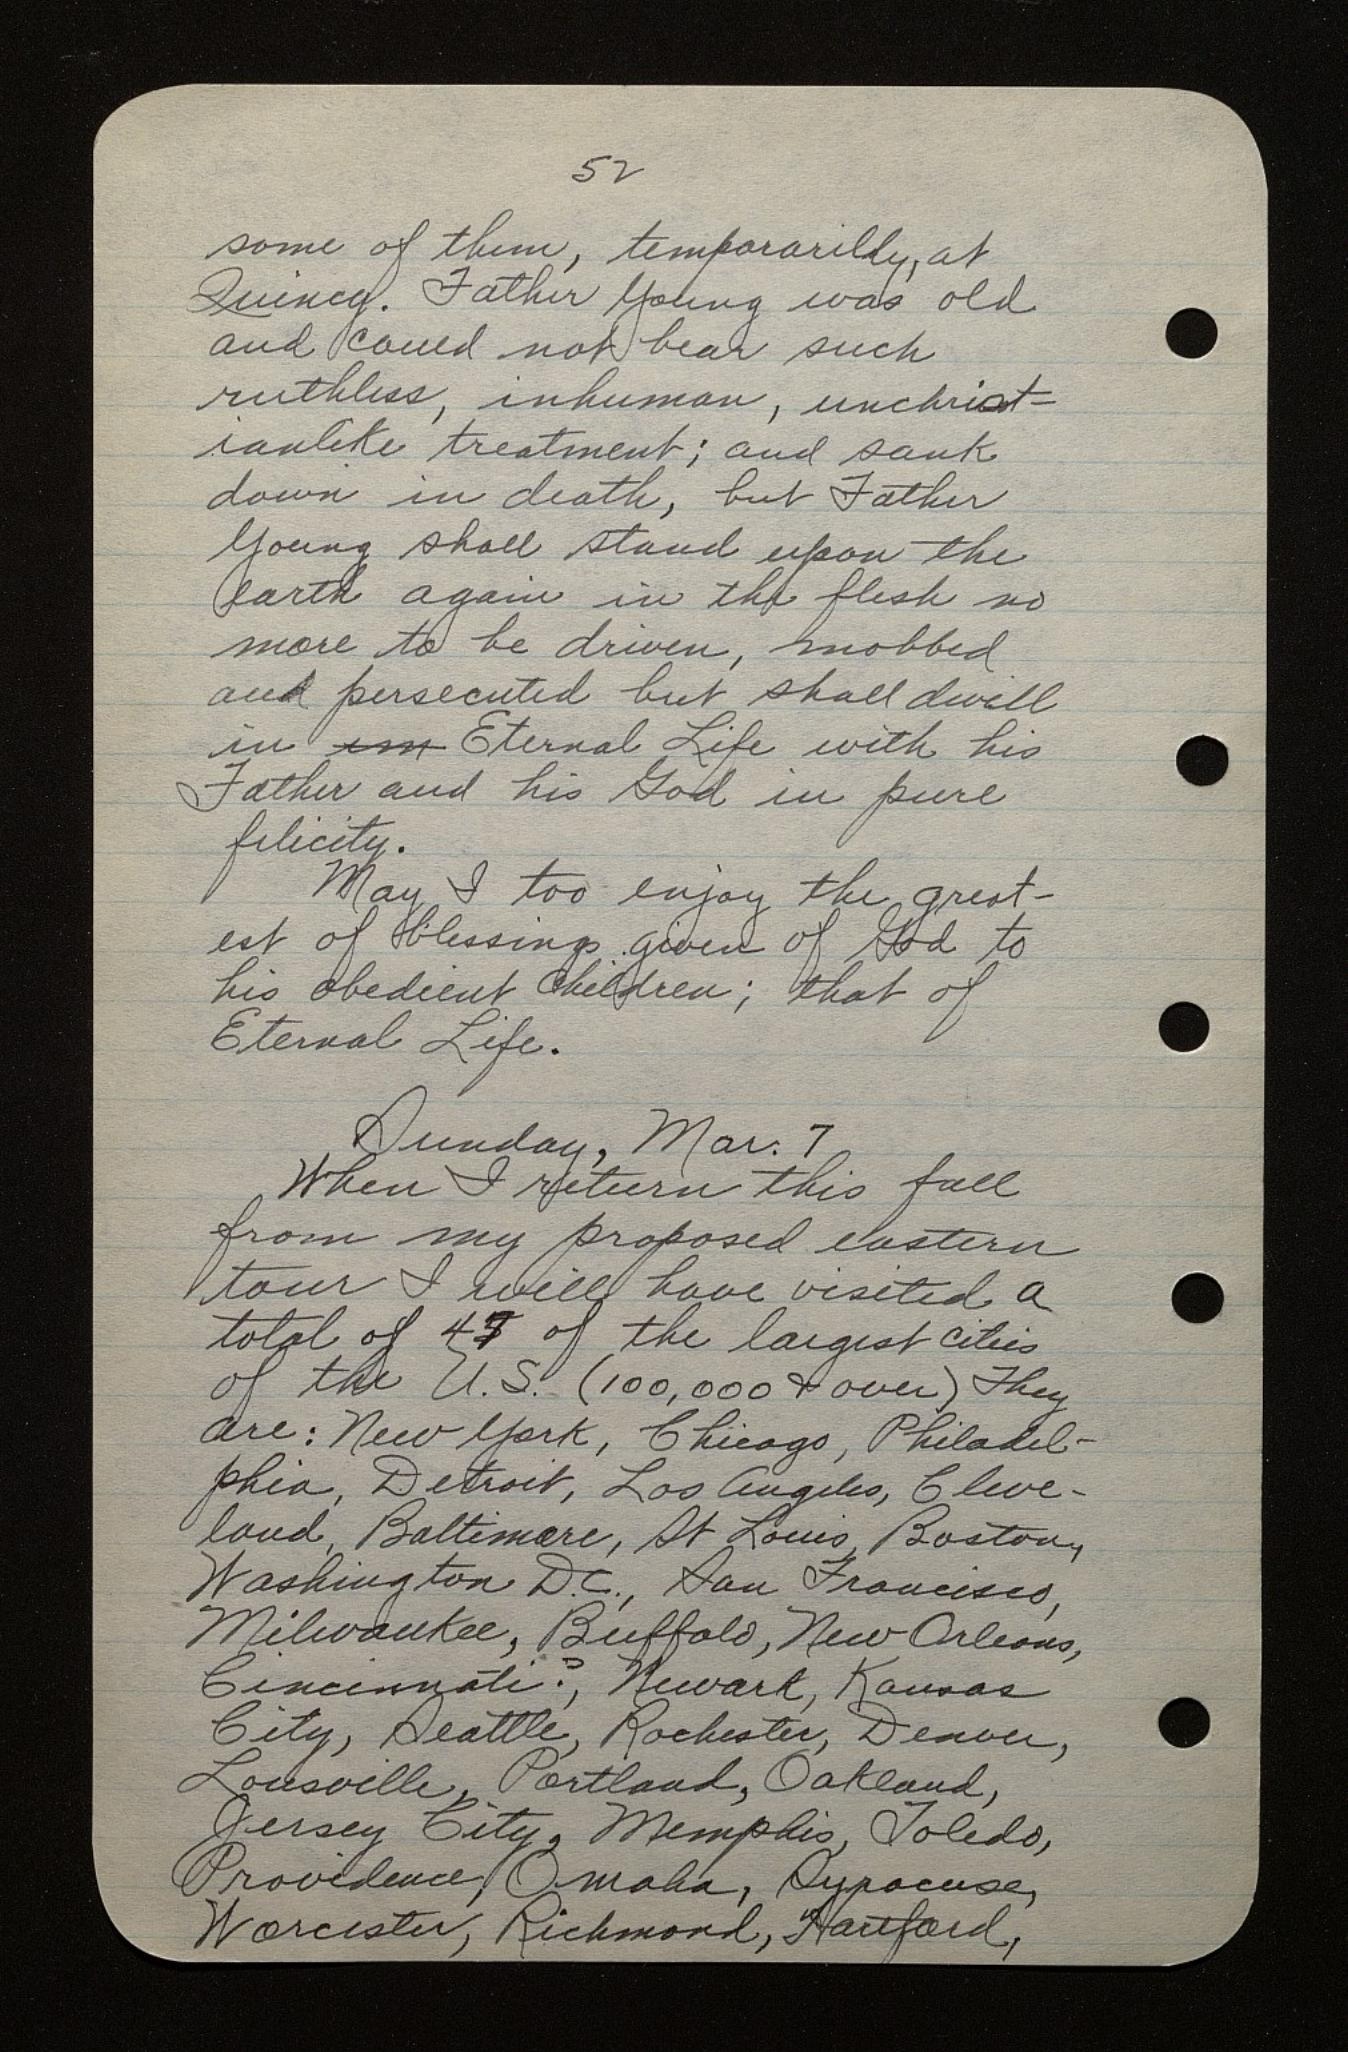 52
some of them, temporarildy, at
Quincy. Father Young was old
and could not bear such
ruthless, inhuman, unchrist-
ianlike treatment; and sank
down in death, but Father
Young shall stand upon the
earth again in the flesh no
more to be driven, mobbed
and persecuted but shall dwell
in im Eternal Life with his
Father and his God in pure
felicity.
May I too enjoy the great-
est of blessings given of God to
his obedient children; that of
Eternal Life.
Sunday, Mar. 7
When I return this fall
from my proposed eastern
tour I will have visited a
total of 47 of the largest cities
of the U.S. (100,000 & over) They
are: New York, Chicago, Philadel-
phia, Detroit, Los Angeles, Cleve-
land, Baltimore, St Louis, Boston,
Washington D.C., San Francisco,
Milwaukee, Buffalo, New Orleans,
Cincinnati?, Newark, Kansas
City, Seattle, Rochester, Denver,
Lousville, Portland, Oakland,
Jersey City, Memphis, Toledo,
Providence, Omaha, Syracuse,
Worcester, Richmond, Hartford,